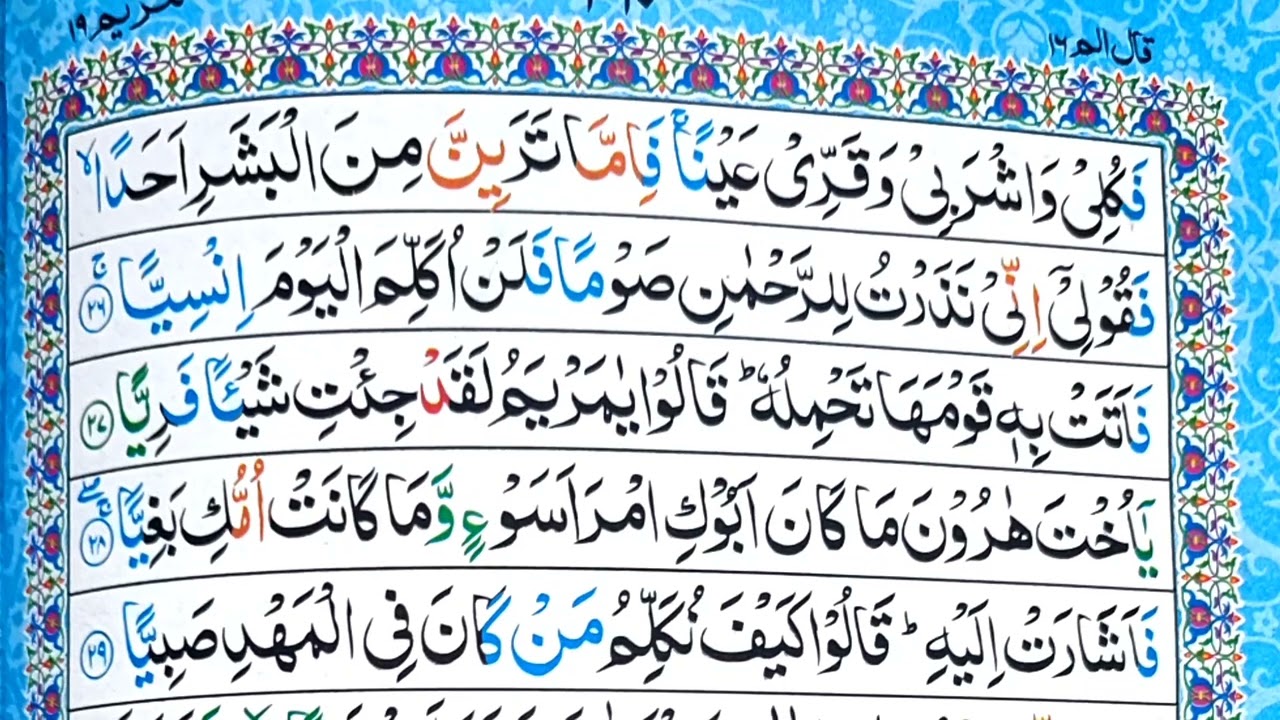 قال الم ١٦
مريم ١٩
فَكُلِیْ وَاشْرَبِیْ وَقَرِّیْ عَیْنًا ۚ فَاِمَّا تَرَیِنَّ مِنَ الْبَشَرِ اَحَدًا ۙ
فَقُوْلِیْۤ اِنِّیْ نَذَرْتُ لِلرَّحْمٰنِ صَوْمًا فَلَنْ اُكَلِّمَ الْیَوْمَ اِنْسِیًّا ۚ ۲۶
فَاَتَتْ بِهٖ قَوْمَهَا تَحْمِلُهٗ ؕ قَالُوْا یٰمَرْیَمُ لَقَدْ جِئْتِ شَیْـًٔا فَرِیًّا ۲۷
یٰۤاُخْتَ هٰرُوْنَ مَا كَانَ اَبُوْكِ امْرَاَ سَوْءٍ وَّمَا كَانَتْ اُمُّكِ بَغِیًّا ۖۚ ۲۸
فَاَشَارَتْ اِلَیْهِ ؕ قَالُوْا كَیْفَ نُكَلِّمُ مَنْ كَانَ فِی الْمَهْدِ صَبِیًّا ۲۹